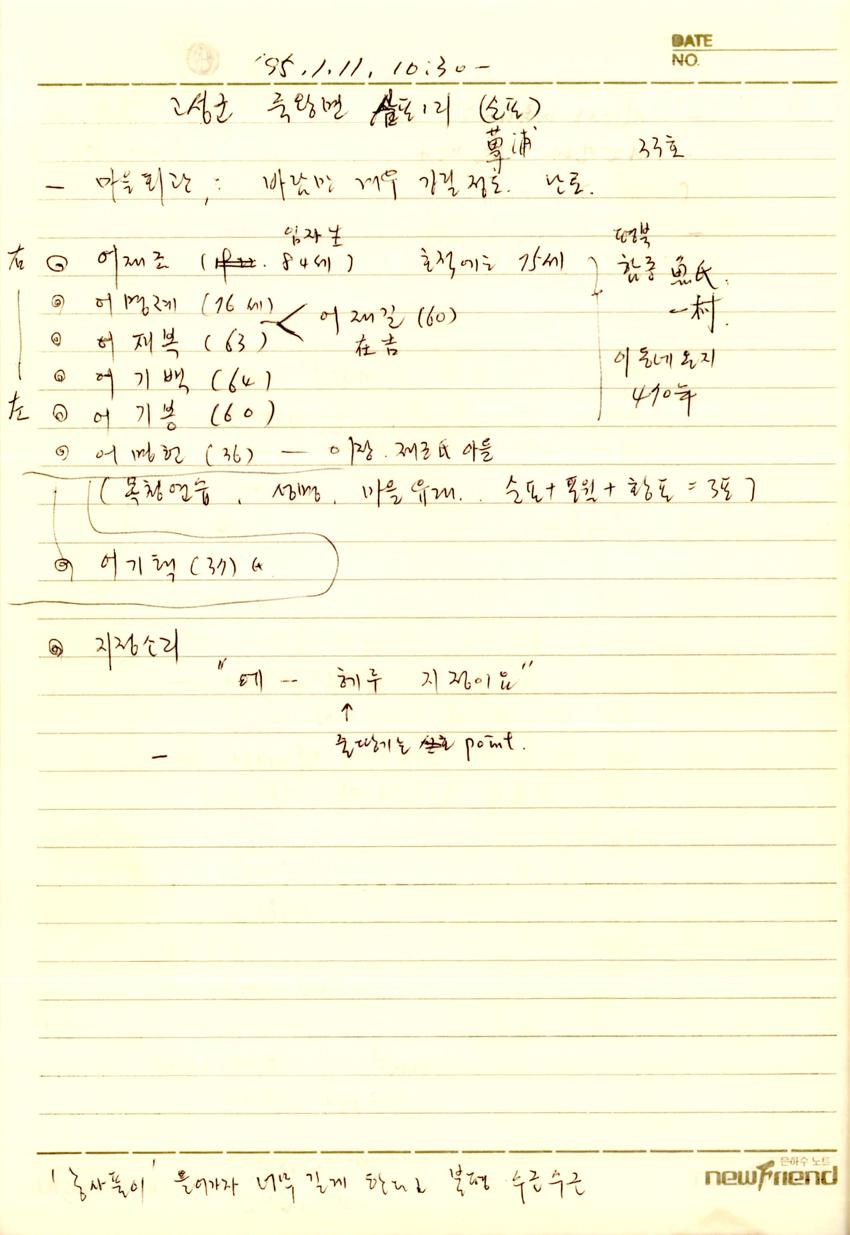 DATE
NO.
'95. 1. 11. 10:30 -
고성군 죽왕면 삼포1리 (순포)
蓴浦 33호
- 마을회관, : 바람만 겨우 가릴 정도. 난로.
임자生
右 어재조 ( . 84세) 호적에는 75세
함종 魚氏.
어명제 (76세)
어재길 (60)
一村.
어재복 (63)
在吉
이 동네 온지
어기백 (64)
410年
左 어기봉 (60)
어명헌 (36) — 이장. 재조氏 아들
(목청연습, 성명, 마을유래.. 순포 + + 황포 = 3포)
어기혁 (37)
지정소리
"에 - 헤루 지정이요"
↑
point.
-
'농사풀이' 들어가자 너무 길게 한다고 불평 수근수근
은하수 노트
newFriend